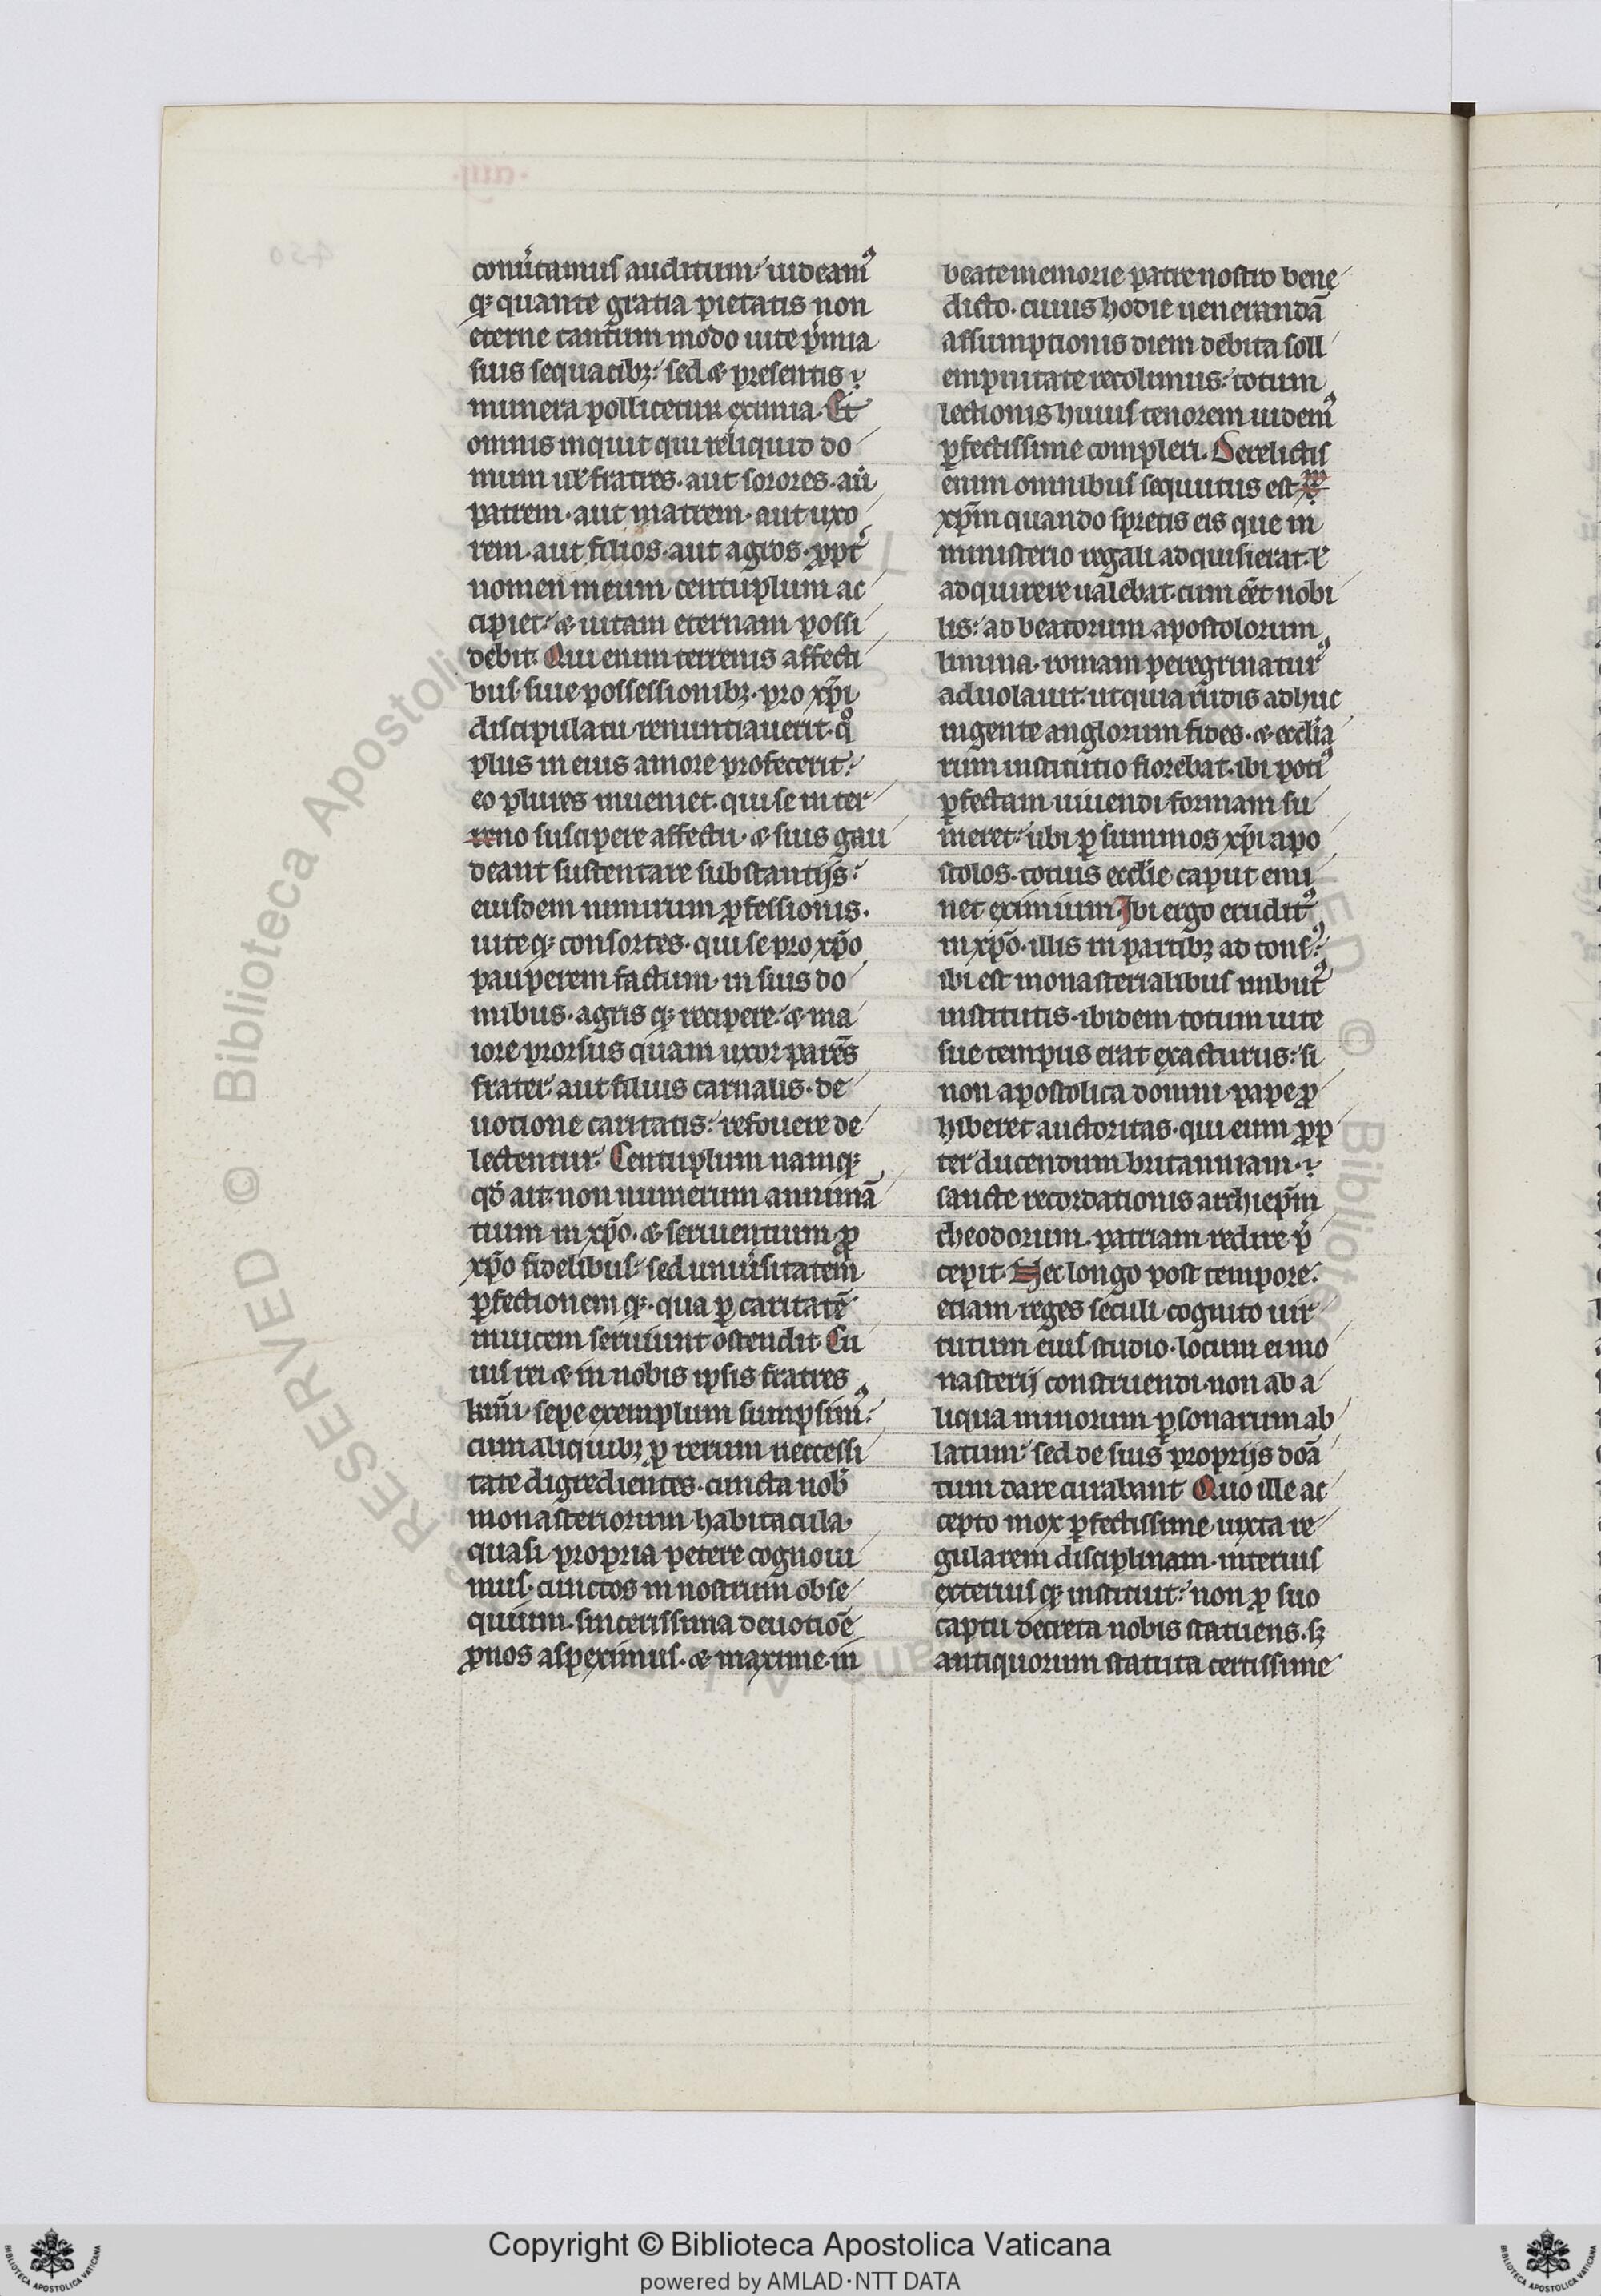 conu̾tamus auditum: uideamꝰ
qꝫ quante gratia pietatis non
eterne tantum modo uite p̾mia
suis sequacibꝫ: sed & presentis
munera pollicetur eximia. Et
omnis inquit qui reliquid do
mum ul̾ fratres. aut sorores. aut̾
patrem. aut matrem. aut uxo
rem. aut filios. aut agros. ꝓpt̾
nomen meum centuplum ac
cipiet: & uitam eternam possi
debit. Qui enim terrenis affecti
bus siue possessionibꝫ. pro xp̄i
discipulatu renuntiauerit. qͦ
plus in eius amore profecerit:
eo plures inueniet. qui se inter
reno suscipere affectu. & suis gau
deant sustentare substantijs:
eiusdem nimirum ꝓfessionis.
uiteqꝫ consortes. qui se pro xp̄o
pauperem factum. in suis do
mibus. agris qꝫ recipere: & ma
iore prorsus quam uxor parēs
frater aut filius carnalis. de
uotione caritatis: refouere de
lectentur. Centuplum namqꝫ
qd̾ ait. non numerum animā
tium in xp̄o. & seruientium ꝓ
xp̄o fidelibus: sed uniu̾sitatem
ꝑfectionem qꝫ. qua ꝑ caritatē
inuicem seruiunt ostendit. Cu
ius rei & in nobis ipsis fratres
km̄i sepe exemplum sumpsimꝰ:
cum aliquibꝫ ꝑ rerum neccessi
tate digredientes. cuncta nob̾
monasteriorum habitacula
quasi propria petere cognoui
mus. cunctos in nostrum obse
quium. sincerissima deuotiōe
ꝓnos aspeximus. & maxime in
beate memorie patre nostro bene
dicto. cuius hodie uenerandā
assumptionis diem debita soll
empnitate recolimus: totum
lectionis huius tenorem uidemꝰ
ꝑfectissime compleri. Derelictis
enim omnibus sequutus est
xp̄m quando spretis eis que in
ministerio regali adquisierat. ł
adquirere ualebat. cum eēt nobi
lis: ad beatorum apostolorum
limina. romam peregrinaturꝰ
aduolauit. ut quia rudis adhuc
ingente anglorum fides. & eccl̾ia
rum institutio florebat. ibi potiꝰ
ꝑfectam uiuendi formam su
meret: ubi ꝑ summos xp̄i apo
stolos. totius ecclie caput emi
net eximium. Ibi ergo eruditꝰ
in xp̄o. illis in partibꝫ ad tonsꝰ:
ibi est monasterialibus imbutꝰ
institutis. ibidem totum uite
sue tempus erat exacturus: si
non apostolica domni pape ꝓ
hiberet auctoritas. qui eum ꝓp
ter ducendum britanniam.
sancte recordationis archiep̄m
theodorum. patriam redire p̾
cepit. Nec longo post tempore:
etiam reges seculi cognito uir
tutum eius studio. locum ei mo
nasterij construendi. non ab a
liqua minorum ꝑsonarum ab
latum: sed de suis proprijs doā
tum dare curabant. Quo ille ac
cepto mox ꝑfectissime iuxta re
gularem disciplinam. interius
exterius qꝫ instituit: non ꝓ suo
captu decreta nobis statuens. sꝫ
antiquorum statuta certissime
© Biblioteca Apostolica Vaticana
RESERVED
Copyright © Biblioteca Apostolica Vaticana
powered by AMLAD·NTT DATA